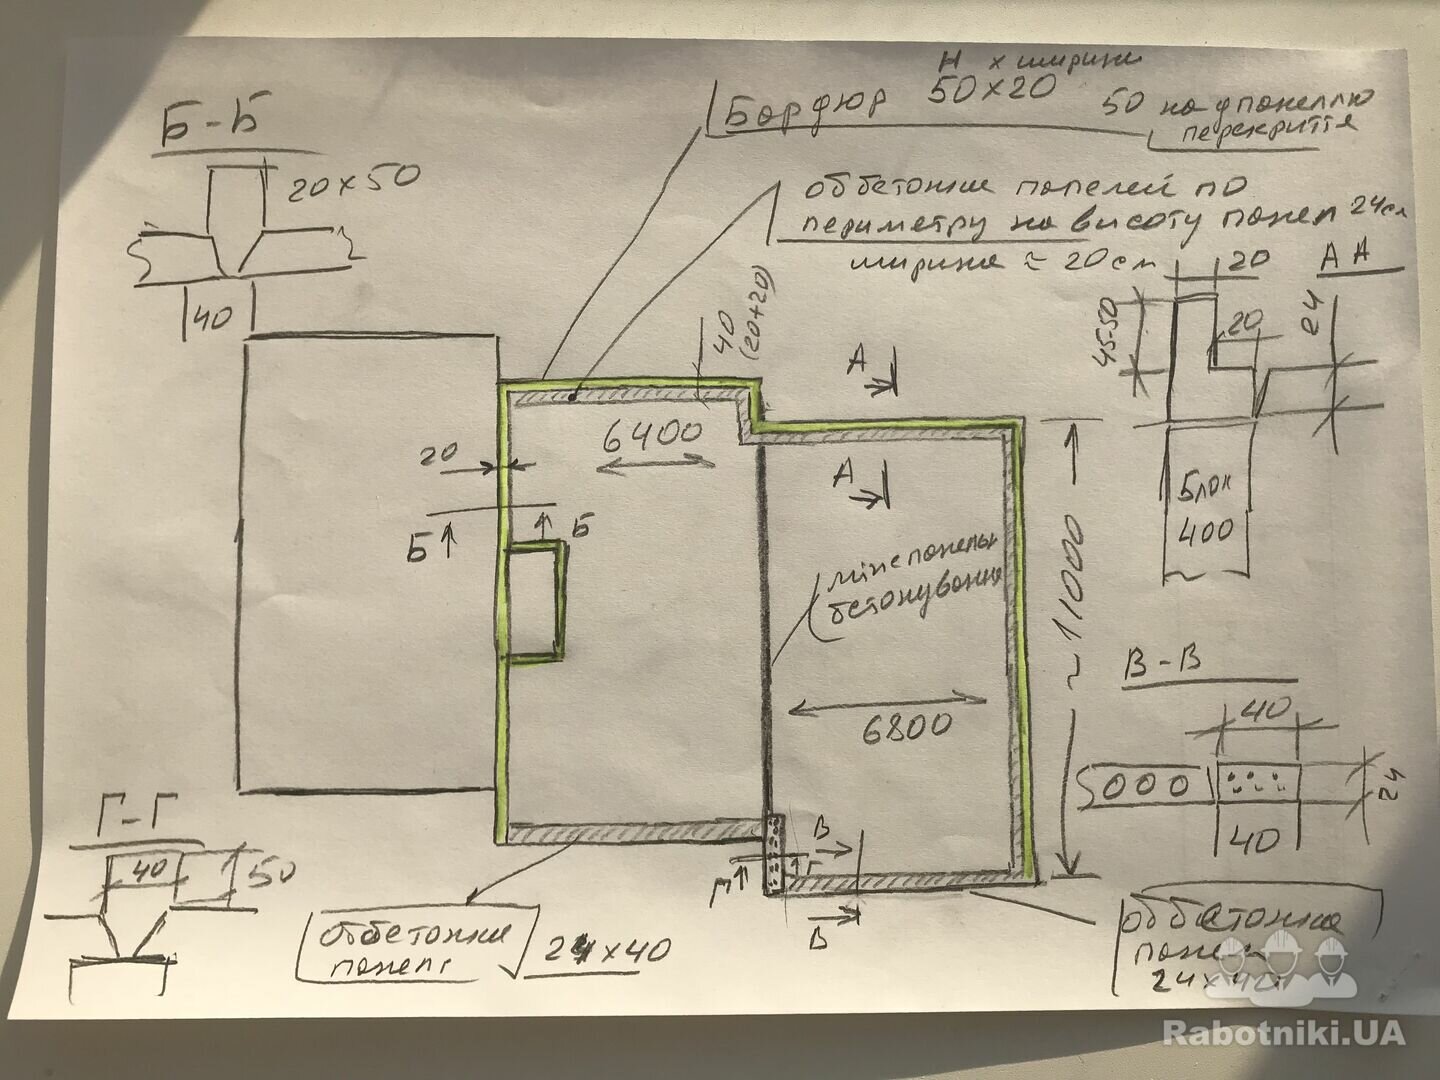 Н х ширини
Бордюр 50х20
50 над панеллю
перекриття
Б-Б
20х50
40
оббетонка панелей по
периметру на висоту панел 24см
ширина ≈ 20см
40
(20+20)
А А
20
45-50
20
24
Блок
400
А
А
6400
20
Б
Б
між панельн
бетонування
~11000
6800
В-В
40
24
40
Г-Г
40
50
В
Г
Г
В
оббетонка
панелі
24х40
оббетонка
панел
24х40
Rabotniki.UA